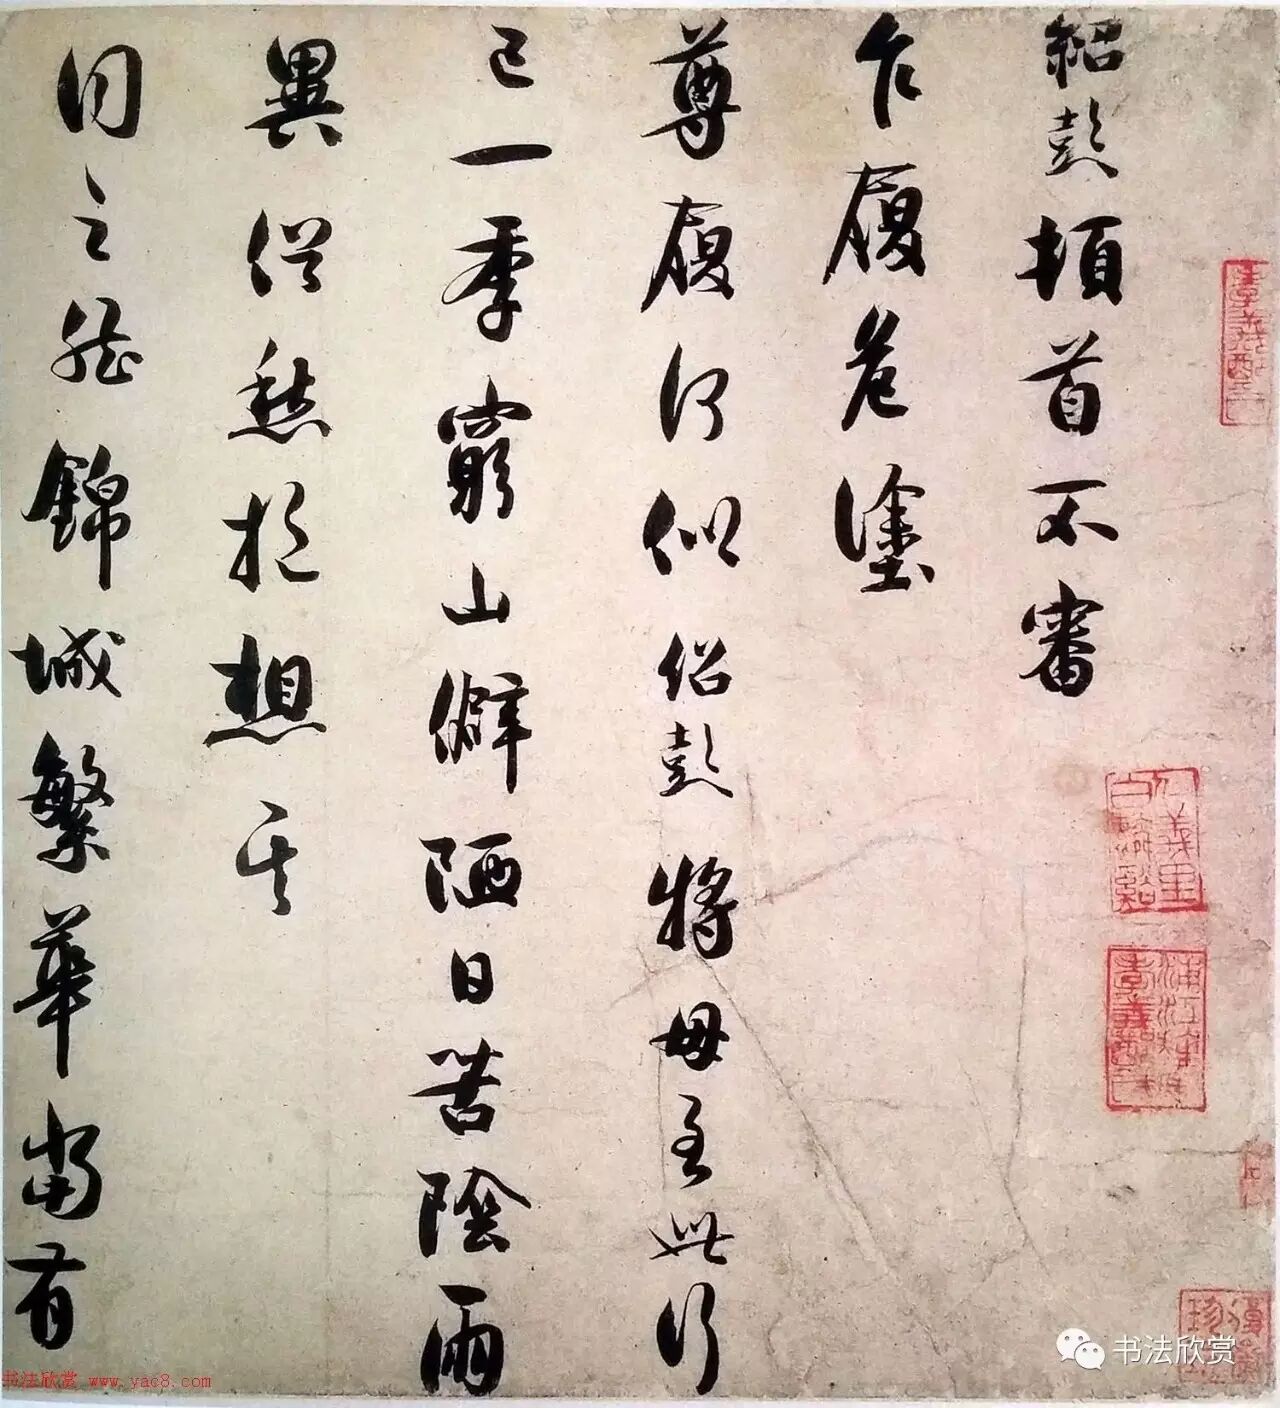 紹彭頓首不審
乍履危塗
尊履何似紹彭將母至此行
已一秊窮山僻陋日苦陰雨
異俗愁抑想其
同之然錦城繁華當有
书法欣赏
书法欣赏 www.yac8.com